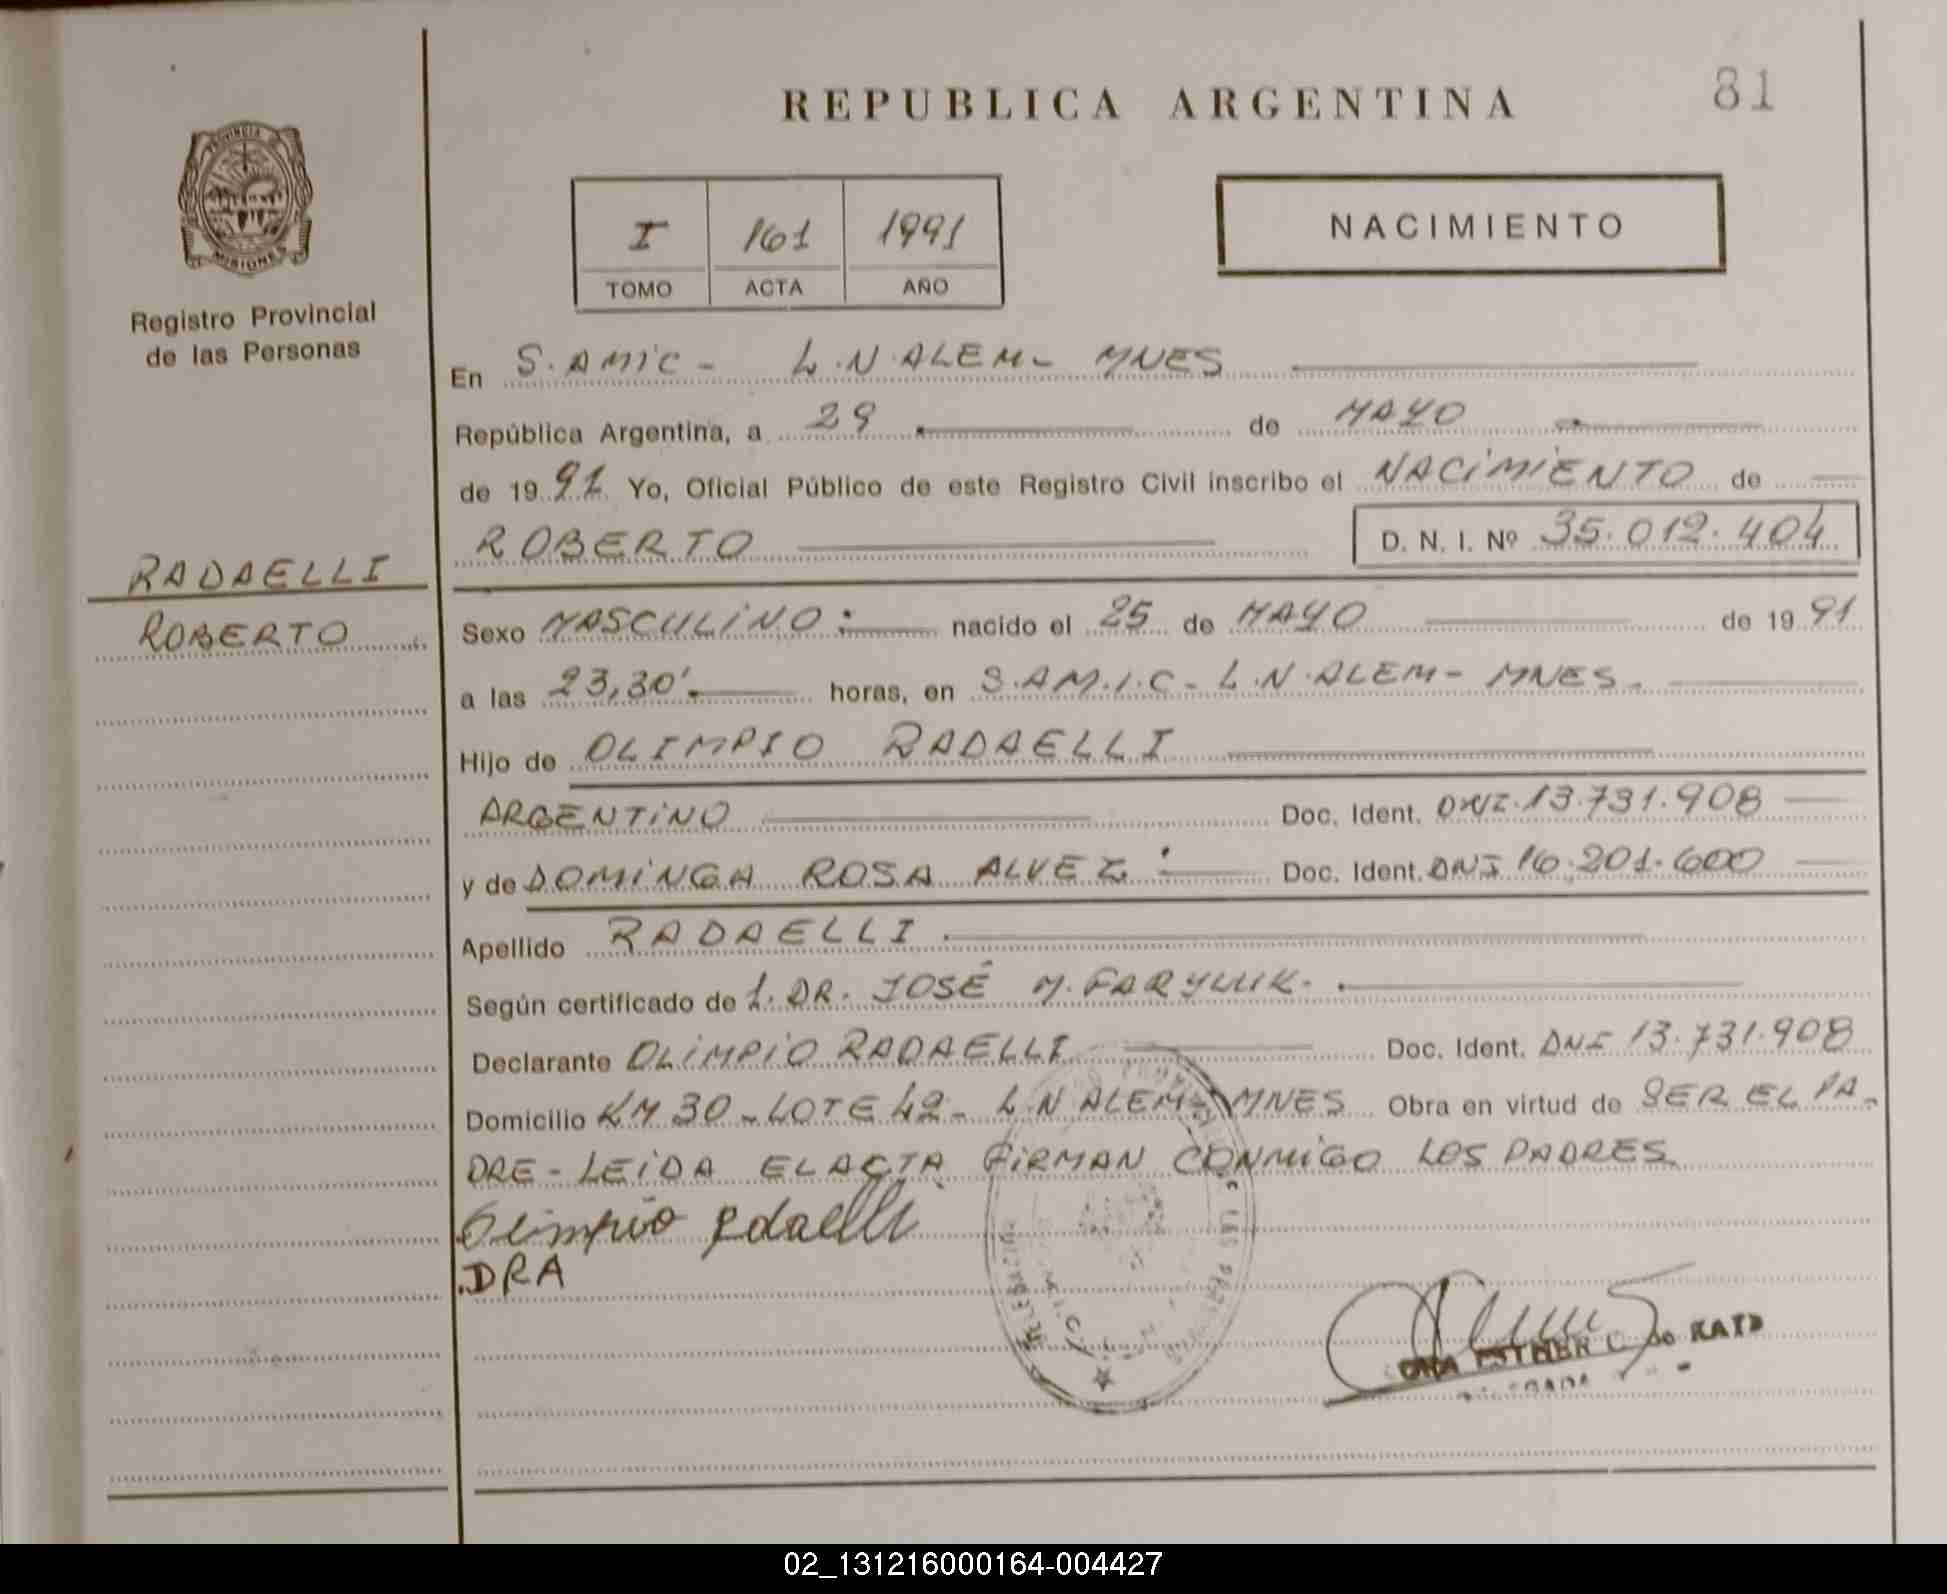 REPUBLICA ARGENTINA
81
PROVINCIA DE
MISIONES
Registro Provincial
de las Personas
I 161 1991
TOMO ACTA AÑO
NACIMIENTO
En S.AMIC - L.N.ALEM - MNES
República Argentina, a 29 de MAYO
de 1991 Yo, Oficial Público de este Registro Civil inscribo el NACIMIENTO de
ROBERTO D. N. I. Nº 35.012.404
RADAELLI
ROBERTO
Sexo MASCULINO: nacido el 25 de MAYO de 1991
a las 23,30'. horas, en S.AM.I.C - L.N.ALEM - MNES.
Hijo de OLIMPIO RADAELLI
ARGENTINO Doc. Ident. DNI.13.731.908
y de DOMINGA ROSA ALVEZ: Doc. Ident. DNI 16.201.600
Apellido RADAELLI
Según certificado de 1. DR. JOSÉ M. FARYLUK.
Declarante OLIMPIO RADAELLI Doc. Ident. DNI 13.731.908
Domicilio KM 30 - LOTE 42 - L.N ALEM - MNES Obra en virtud de SER EL PA-
DRE - LEIDA EL ACTA FIRMAN CONMIGO LOS PADRES
Olimpio Rdaelli
DRA
ESTHER
02_131216000164-004427